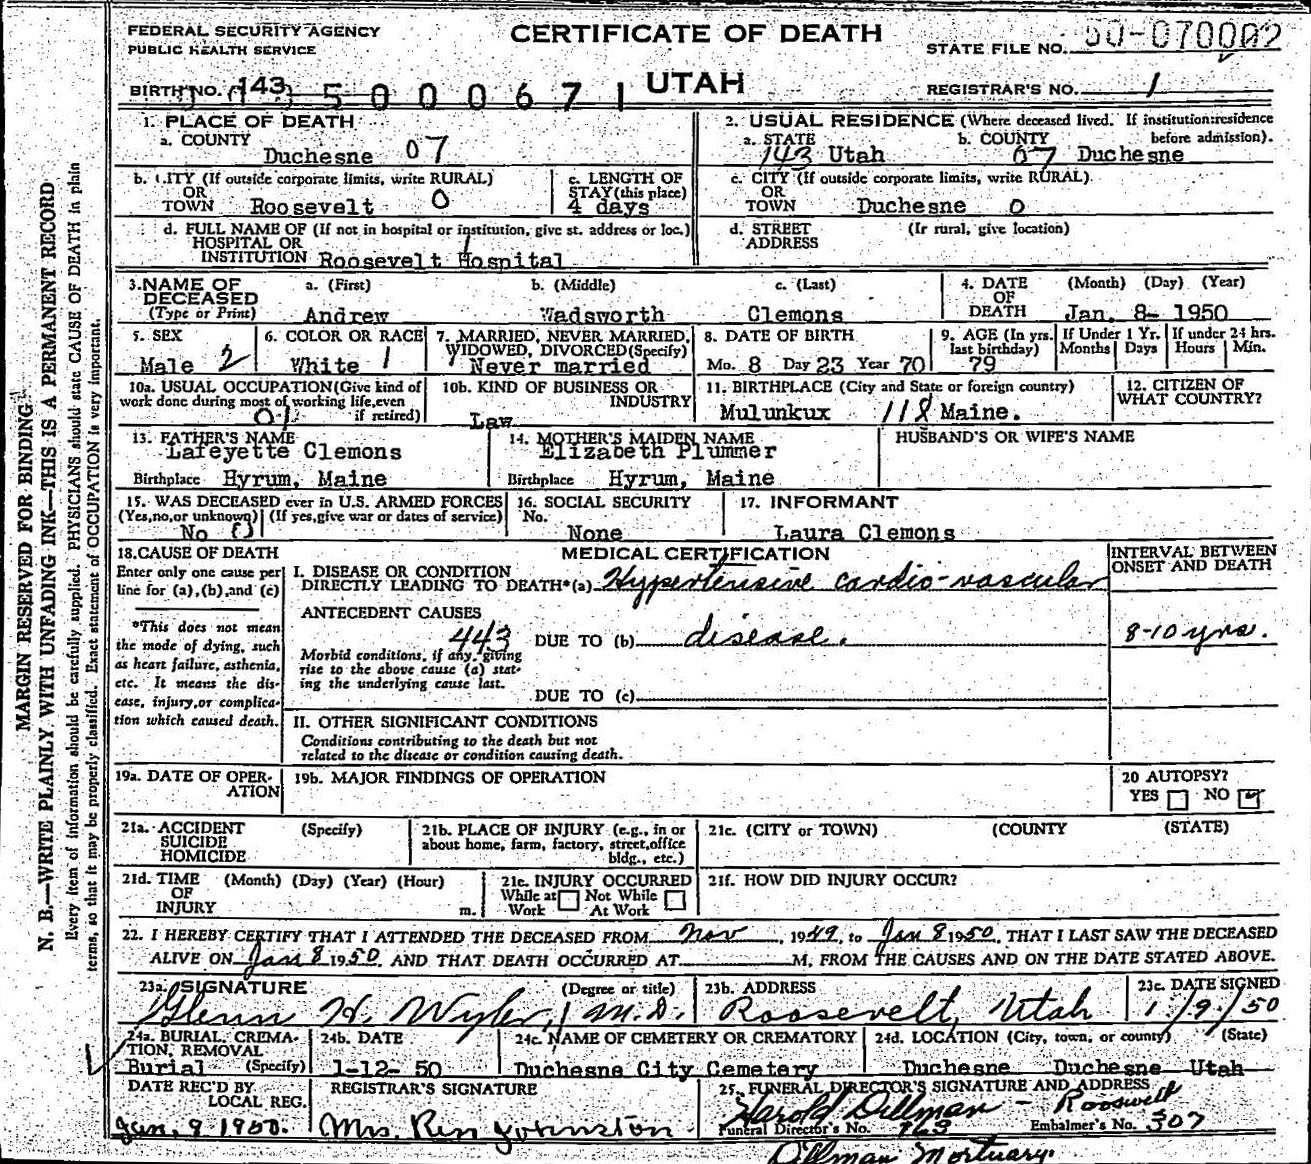 FEDERAL SECURITY AGENCY
PUBLIC HEALTH SERVICE
CERTIFICATE OF DEATH
UTAH
STATE FILE NO. 50-070002
BIRTH NO. 143 5000671
REGISTRAR'S NO. 1
1. PLACE OF DEATH
a. COUNTY
Duchesne 07
2. USUAL RESIDENCE (Where deceased lived. If institution: residence before admission).
a. STATE b. COUNTY
143 Utah 07 Duchesne
b. CITY (If outside corporate limits, write RURAL)
OR
TOWN Roosevelt 0
c. LENGTH OF
STAY (this place)
4 days
c. CITY (If outside corporate limits, write RURAL)
OR
TOWN Duchesne 0
d. FULL NAME OF (If not in hospital or institution, give st. address or loc.)
HOSPITAL OR
INSTITUTION Roosevelt Hospital
d. STREET (If rural, give location)
ADDRESS
3. NAME OF DECEASED
(Type or Print)
a. (First) b. (Middle) c. (Last)
Andrew Wadsworth Clemons
4. DATE OF DEATH (Month) (Day) (Year)
Jan. 8- 1950
5. SEX
Male 2
6. COLOR OR RACE
White 1
7. MARRIED, NEVER MARRIED,
WIDOWED, DIVORCED (Specify)
Never married
8. DATE OF BIRTH
Mo. 8 Day 23 Year 70
9. AGE (In yrs. last birthday)
79
If Under 1 Yr.
Months Days
If under 24 hrs.
Hours Min.
10a. USUAL OCCUPATION (Give kind of
work done during most of working life, even
if retired)
10b. KIND OF BUSINESS OR
INDUSTRY
Law
11. BIRTHPLACE (City and State or foreign country)
Mulunkux 118 Maine.
12. CITIZEN OF
WHAT COUNTRY?
13. FATHER'S NAME
Lafeyette Clemons
Birthplace Hyrum, Maine
14. MOTHER'S MAIDEN NAME
Elizabeth Plummer
Birthplace Hyrum, Maine
HUSBAND'S OR WIFE'S NAME
15. WAS DECEASED ever in U.S. ARMED FORCES
(Yes, no, or unknown) (If yes, give war or dates of service)
No 0
16. SOCIAL SECURITY
No.
None
17. INFORMANT
Laura Clemons
18. CAUSE OF DEATH
Enter only one cause per
line for (a), (b), and (c)
*This does not mean
the mode of dying, such
as heart failure, asthenia,
etc. It means the dis-
ease, injury, or complica-
tion which caused death.
MEDICAL CERTIFICATION
I. DISEASE OR CONDITION
DIRECTLY LEADING TO DEATH*(a) Hypertensive cardio-vascular
ANTECEDENT CAUSES
443 DUE TO (b) disease.
Morbid conditions, if any, giving
rise to the above cause (a) stat-
ing the underlying cause last.
DUE TO (c)
INTERVAL BETWEEN
ONSET AND DEATH
8-10 yrs.
II. OTHER SIGNIFICANT CONDITIONS
Conditions contributing to the death but not
related to the disease or condition causing death.
19a. DATE OF OPER-
ATION
19b. MAJOR FINDINGS OF OPERATION
20 AUTOPSY?
YES NO
21a. ACCIDENT (Specify)
SUICIDE
HOMICIDE
21b. PLACE OF INJURY (e.g., in or
about home, farm, factory, street, office
bldg., etc.)
21c. (CITY or TOWN) (COUNTY (STATE)
21d. TIME (Month) (Day) (Year) (Hour)
OF
INJURY m.
21e. INJURY OCCURRED
While at Work Not While At Work
21f. HOW DID INJURY OCCUR?
22. I HEREBY CERTIFY THAT I ATTENDED THE DECEASED FROM Nov, 1949, to Jan 8 1950, THAT I LAST SAW THE DECEASED
ALIVE ON Jan 8 1950, AND THAT DEATH OCCURRED AT M, FROM THE CAUSES AND ON THE DATE STATED ABOVE.
23a. SIGNATURE (Degree or title)
Glenn H. Wyler, M.D.
23b. ADDRESS
Roosevelt, Utah
23c. DATE SIGNED
1/9/50
24a. BURIAL, CREMA-
TION, REMOVAL
(Specify)
Burial
24b. DATE
1-12-50
24c. NAME OF CEMETERY OR CREMATORY
Duchesne City Cemetery
24d. LOCATION (City, town, or county) (State)
Duchesne Duchesne Utah
DATE REC'D BY
LOCAL REG.
Jan. 9 1950.
REGISTRAR'S SIGNATURE
Mrs. Johnston
25. FUNERAL DIRECTOR'S SIGNATURE AND ADDRESS
Harold Dillman - Roosevelt
Funeral Director's No. Embalmer's No. 307
Dillman Mortuary.
MARGIN RESERVED FOR BINDING
N. B.—WRITE PLAINLY, WITH UNFADING INK—THIS IS A PERMANENT RECORD
Every item of information should be carefully supplied. PHYSICIANS should state CAUSE OF DEATH in plain
terms, so that it may be properly classified. Exact statement of OCCUPATION is very important.